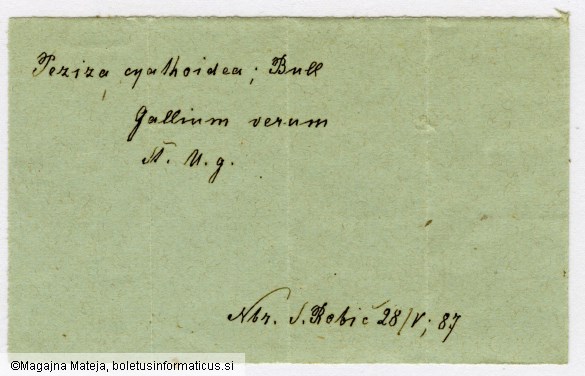 Peziza cyathoidea; Bull
Gallium verum
St. U. g.
Nbr. S. Robič 28/V; 87
©Magajna Mateja, boletusinformaticus.si